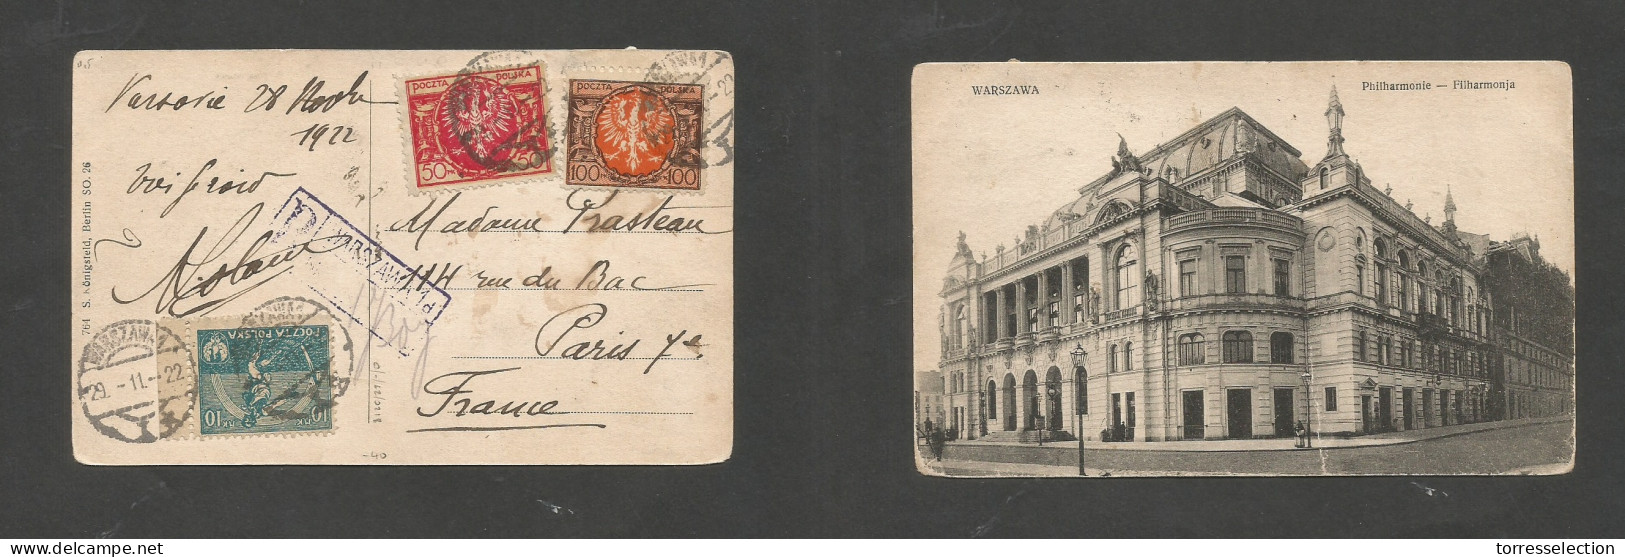 Varsovie 28
1922
POCZTA POLSKA
50 MK 50
POCZTA POLSKA
100 MK 100
Madame
114 rue du Bac
Paris 7e
France
R WARSZAWA 1d
POCZTA POLSKA
10 MK 10
WARSZAWA 1
29.-11.-22
764 S. Königsfeld, Berlin SO. 26
-40
WARSZAWA
Philharmonie — Filharmonja
torresselection
delcampe.net